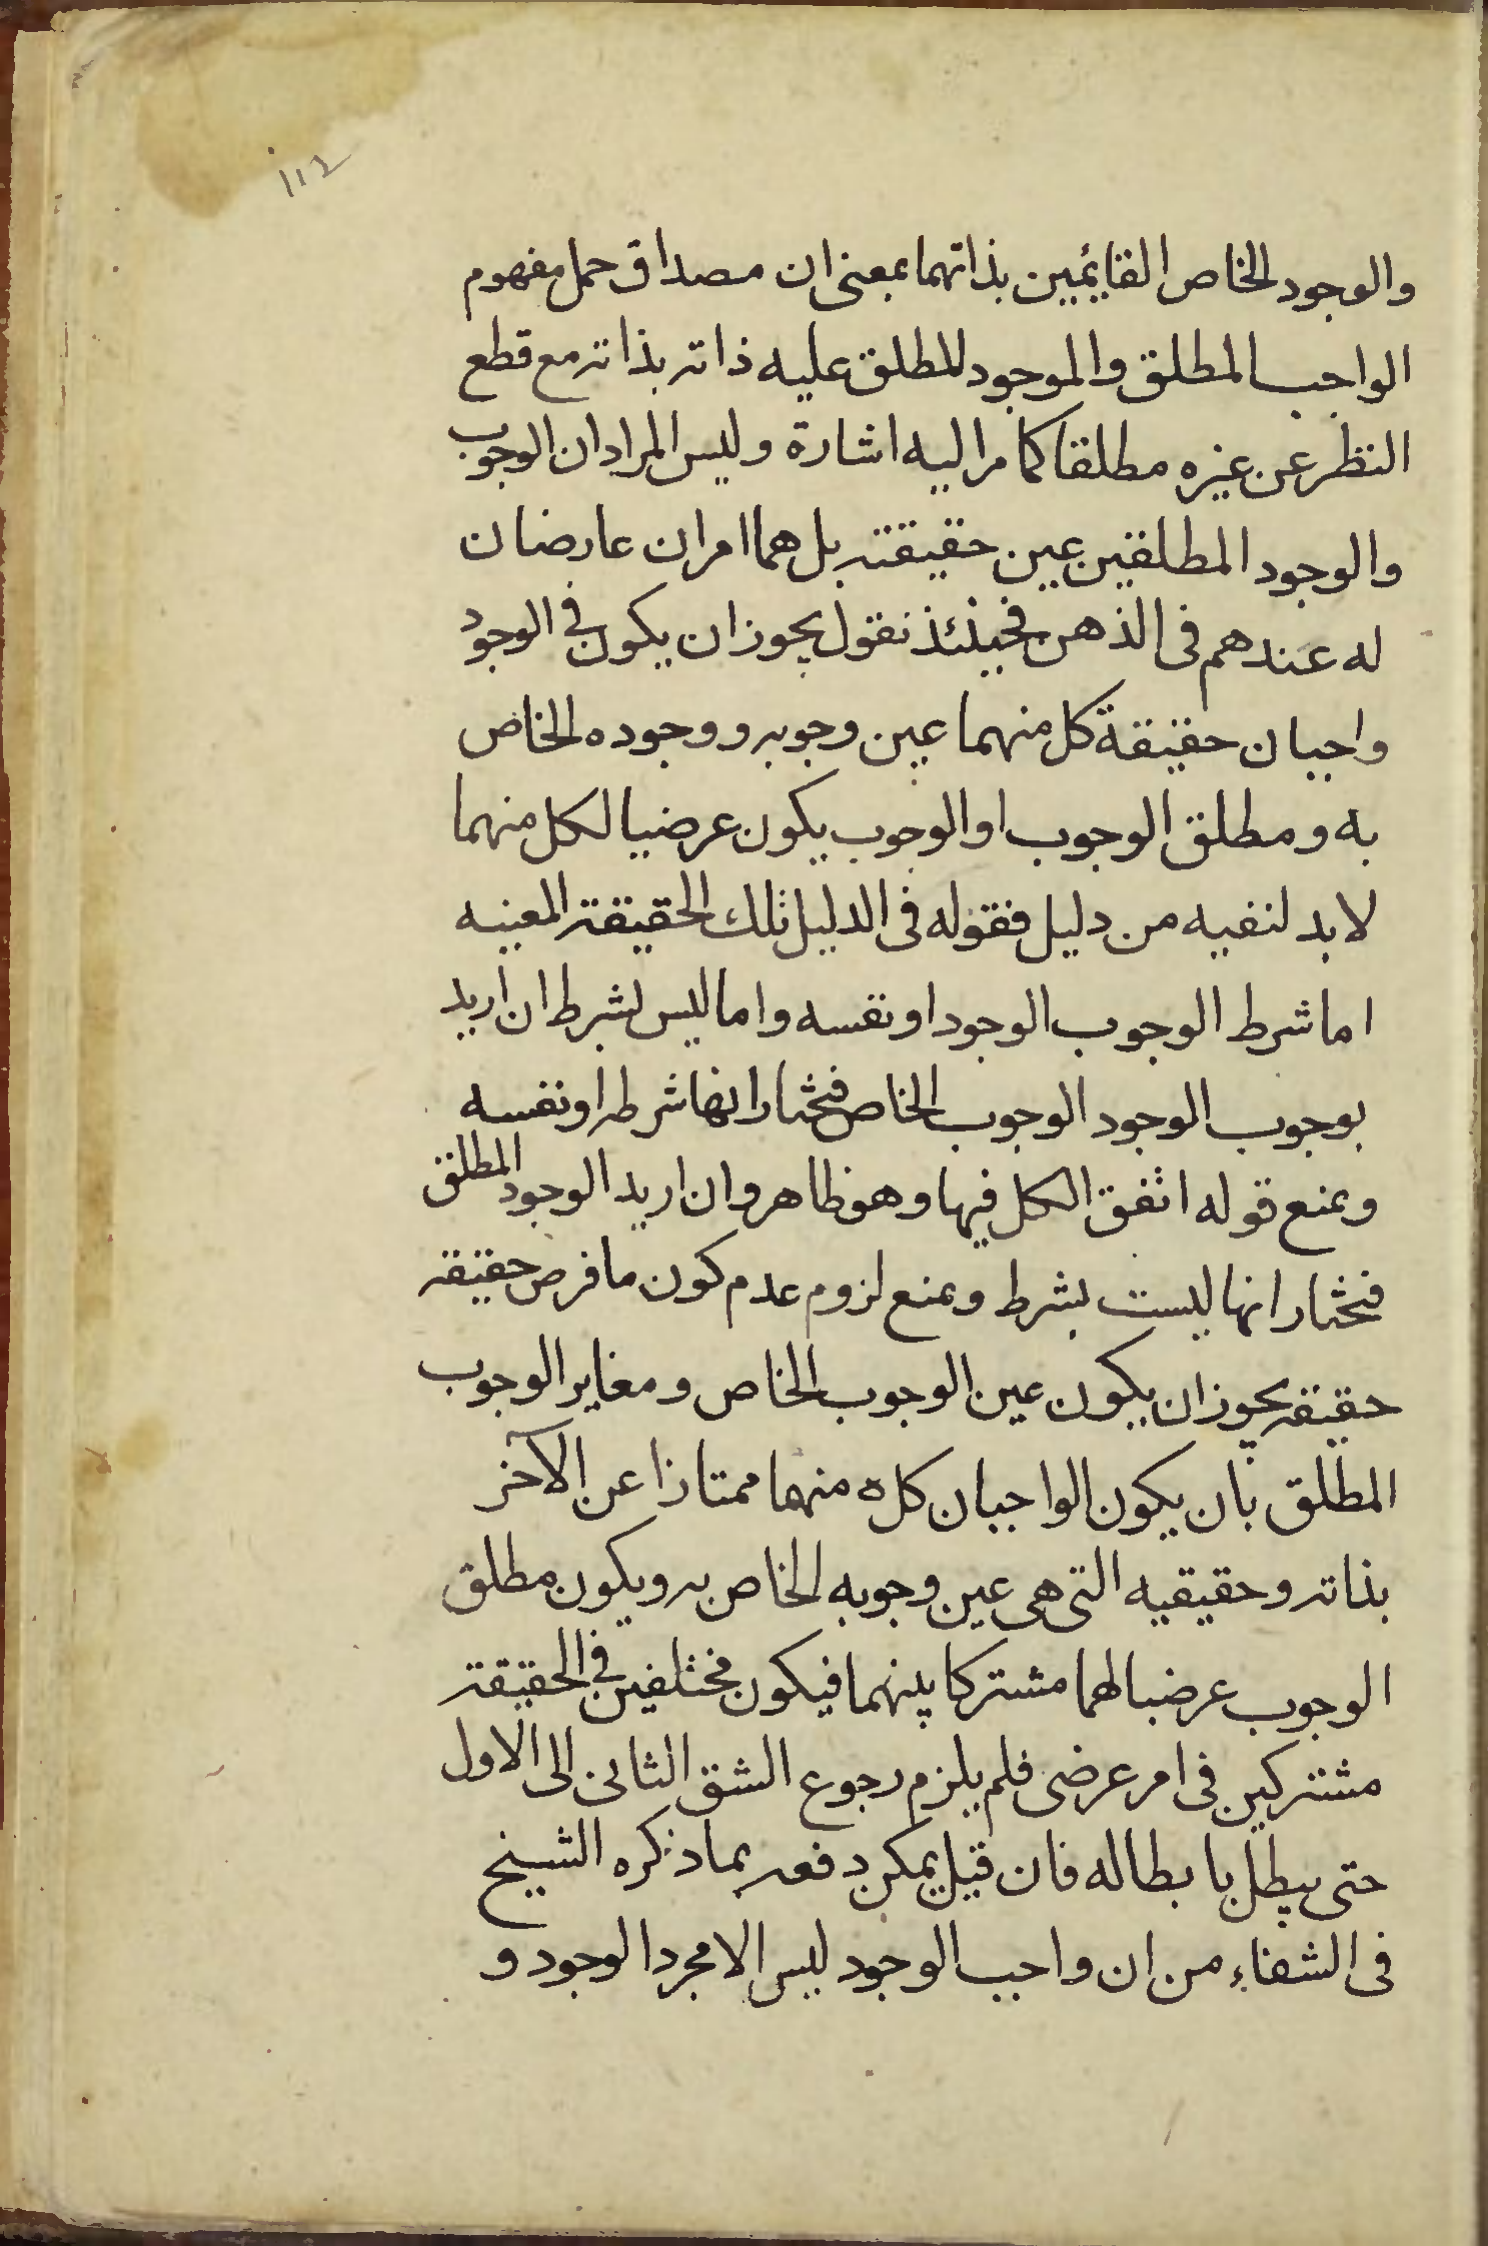 ١١٤
والوجود الخاص القايمين بذاتهما بمعنى ان مصداق حمل مفهوم
الواجب المطلق والموجود المطلق عليه ذاته بذاته مع قطع
النظر عن غيره مطلقا كما مر اليه اشارة وليس المراد ان الوجوب
والوجود المطلقين عين حقيقته بل هما امران عارضان
له عندهم فى الذهن فحينئذ نقول يجوز ان يكون فى الوجود
واجبان حقيقة كل منهما عين وجوبه ووجوده الخاص
به ومطلق الوجوب او الوجوب يكون عرضيا لكل منهما
لا بد لنفيه من دليل فقوله فى الدليل تلك الحقيقة المعينه
اما شرط الوجوب الوجود او نفسه واما ليس بشرط ان اريد
بوجوب الوجود الوجوب الخاص فنختار انها شرطه او نفسه
ويمنع قوله اتفق الكل فيها وهو ظاهر وان اريد الوجود المطلق
فنختار انها ليست بشرط ويمنع لزوم عدم كون ما فرض حقيقة
حقيقة يجوز ان يكون عين الوجوب الخاص ومغاير الوجوب
المطلق بان يكون الواجبان كل منهما ممتازا عن الآخر
بذاته وحقيقيه التى هى عين وجوبه الخاص به ويكون مطلق
الوجوب عرضيا لهما مشتركا بينهما فيكون مختلفين فى الحقيقة
مشتركين فى امر عرضى فلم يلزم رجوع الشق الثانى الى الاول
حتى يبطل بابطاله فان قيل يمكن دفعه بما ذكره الشيخ
فى الشفاء من ان واجب الوجود ليس الا مجرد الوجود و